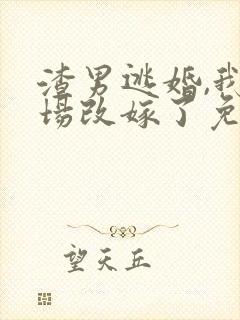 渣男逃婚,我
场改嫁了免
望天丘